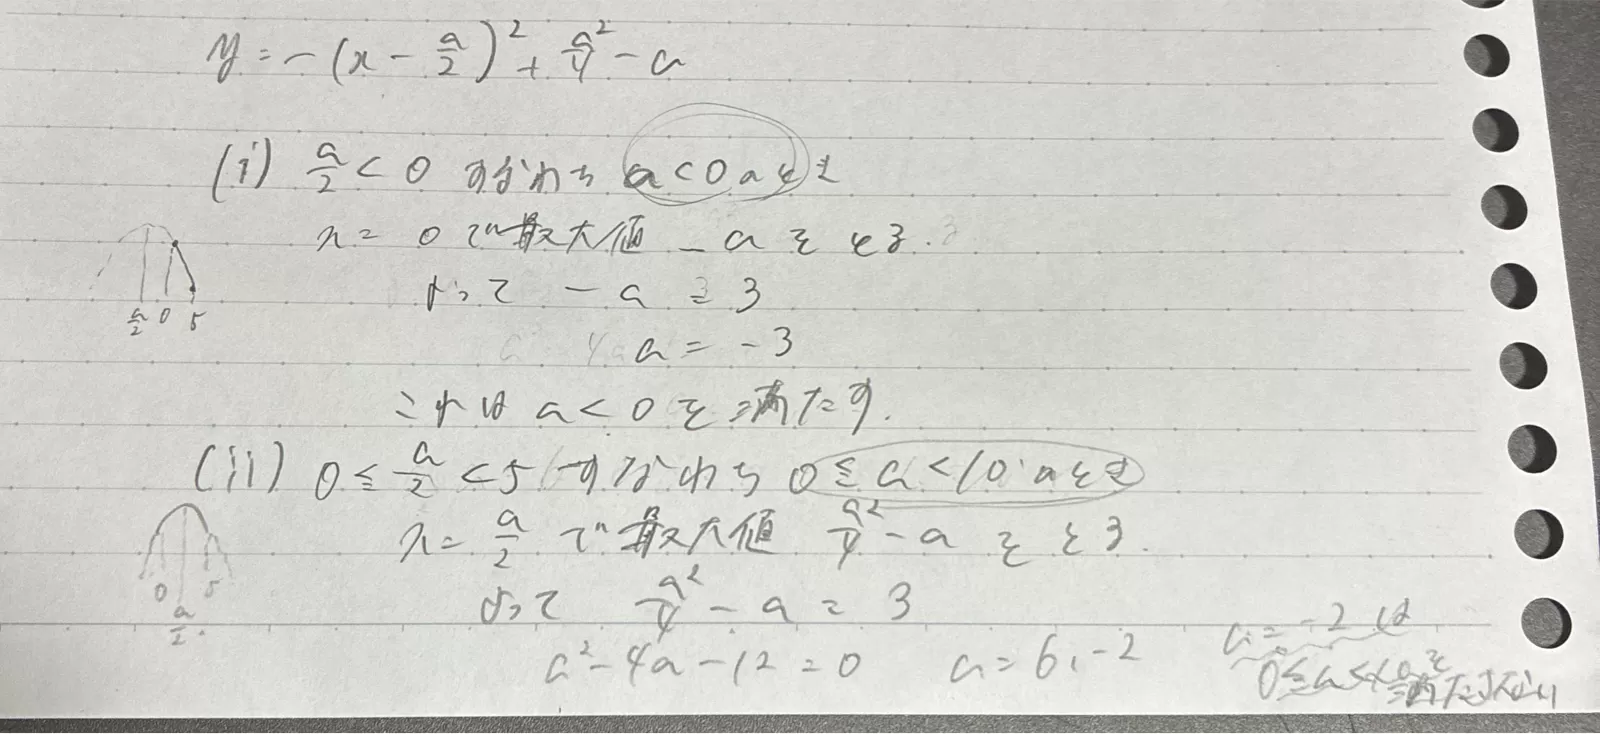 y = -(x - a/2)² + a²/4 - a
(i) a/2 < 0 すなわち a < 0 のとき
x = 0 で最大値 -a をとる.
よって -a = 3
a = -3
これは a < 0 を満たす.
a/2 0 5
(ii) 0 ≦ a/2 < 5 すなわち 0 ≦ a < 10 のとき
x = a/2 で最大値 a²/4 - a をとる.
よって a²/4 - a = 3
0 a/2 5
a² - 4a - 12 = 0 a = 6, -2
a = -2 は
0 ≦ a < 10 を
満たさない